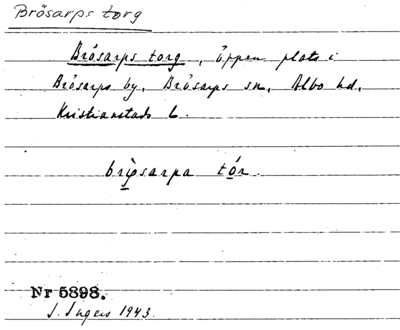 Brösarps torg
Brösarps torg, Öppen plats i
Brösarps by, Brösarps sn, Albo hd,
Kristianstads L.
tór.
Nr 5898.
I. Ingers 1943.